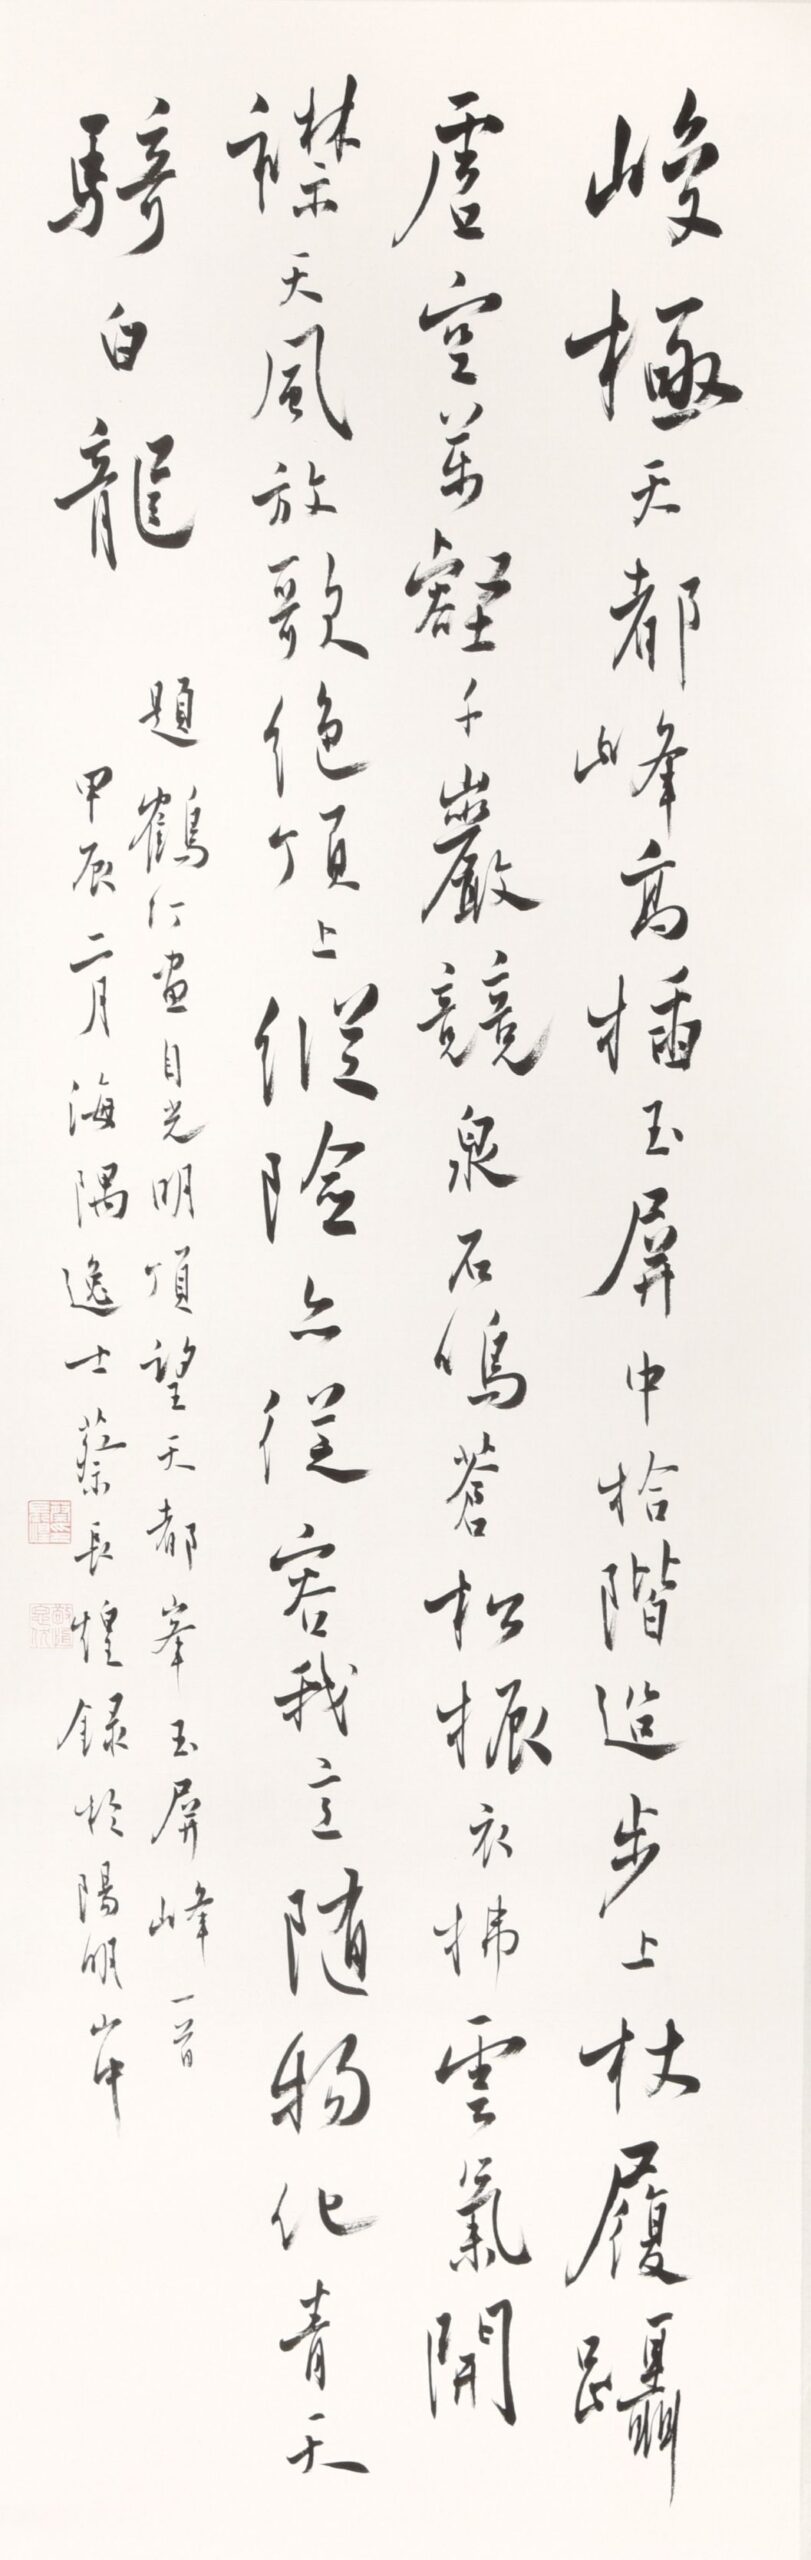 峻極天都峰高插玉屏中拾階造步上杖履躡
虛空萬壑千巖競泉石鳴蒼松振衣拂雲氣開
襟天風放歌絕頂上縱險亦從容我意隨物化青天
騎白龍
題鶴行畫自光明頂望天都峯玉屏峰一首
甲辰二月海隅逸士蔡長煌錄於陽明山中